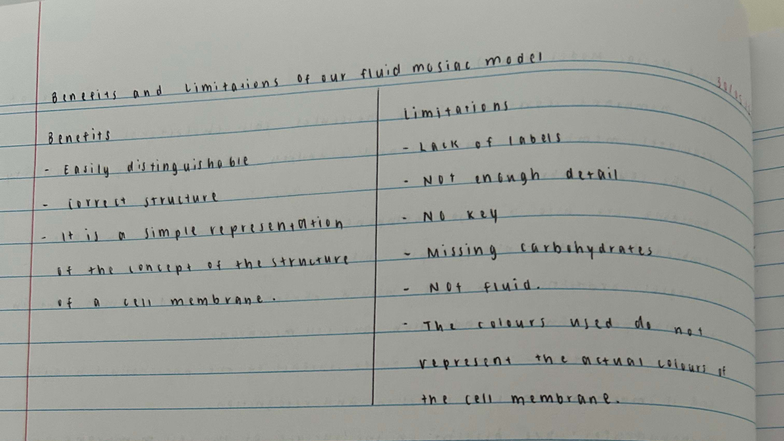 Benefits and limitations of our fluid mosiac model
Benefits
- Easily distinguishable
- correct structure
- It is a simple representation
of the concept of the structure
of a cell membrane.
limitations
- Lack of labels
- Not enough detail
- No key
- Missing carbohydrates
- Not fluid.
- The colours used do not
represent the actual colours of
the cell membrane.